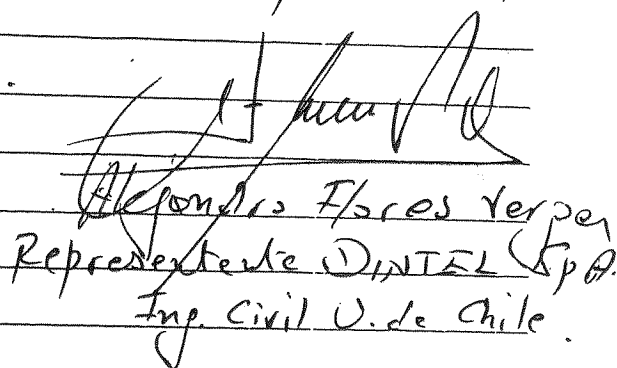 Alejandro Flores
Representante DINTEL SpA.
Ing. Civil U. de Chile.